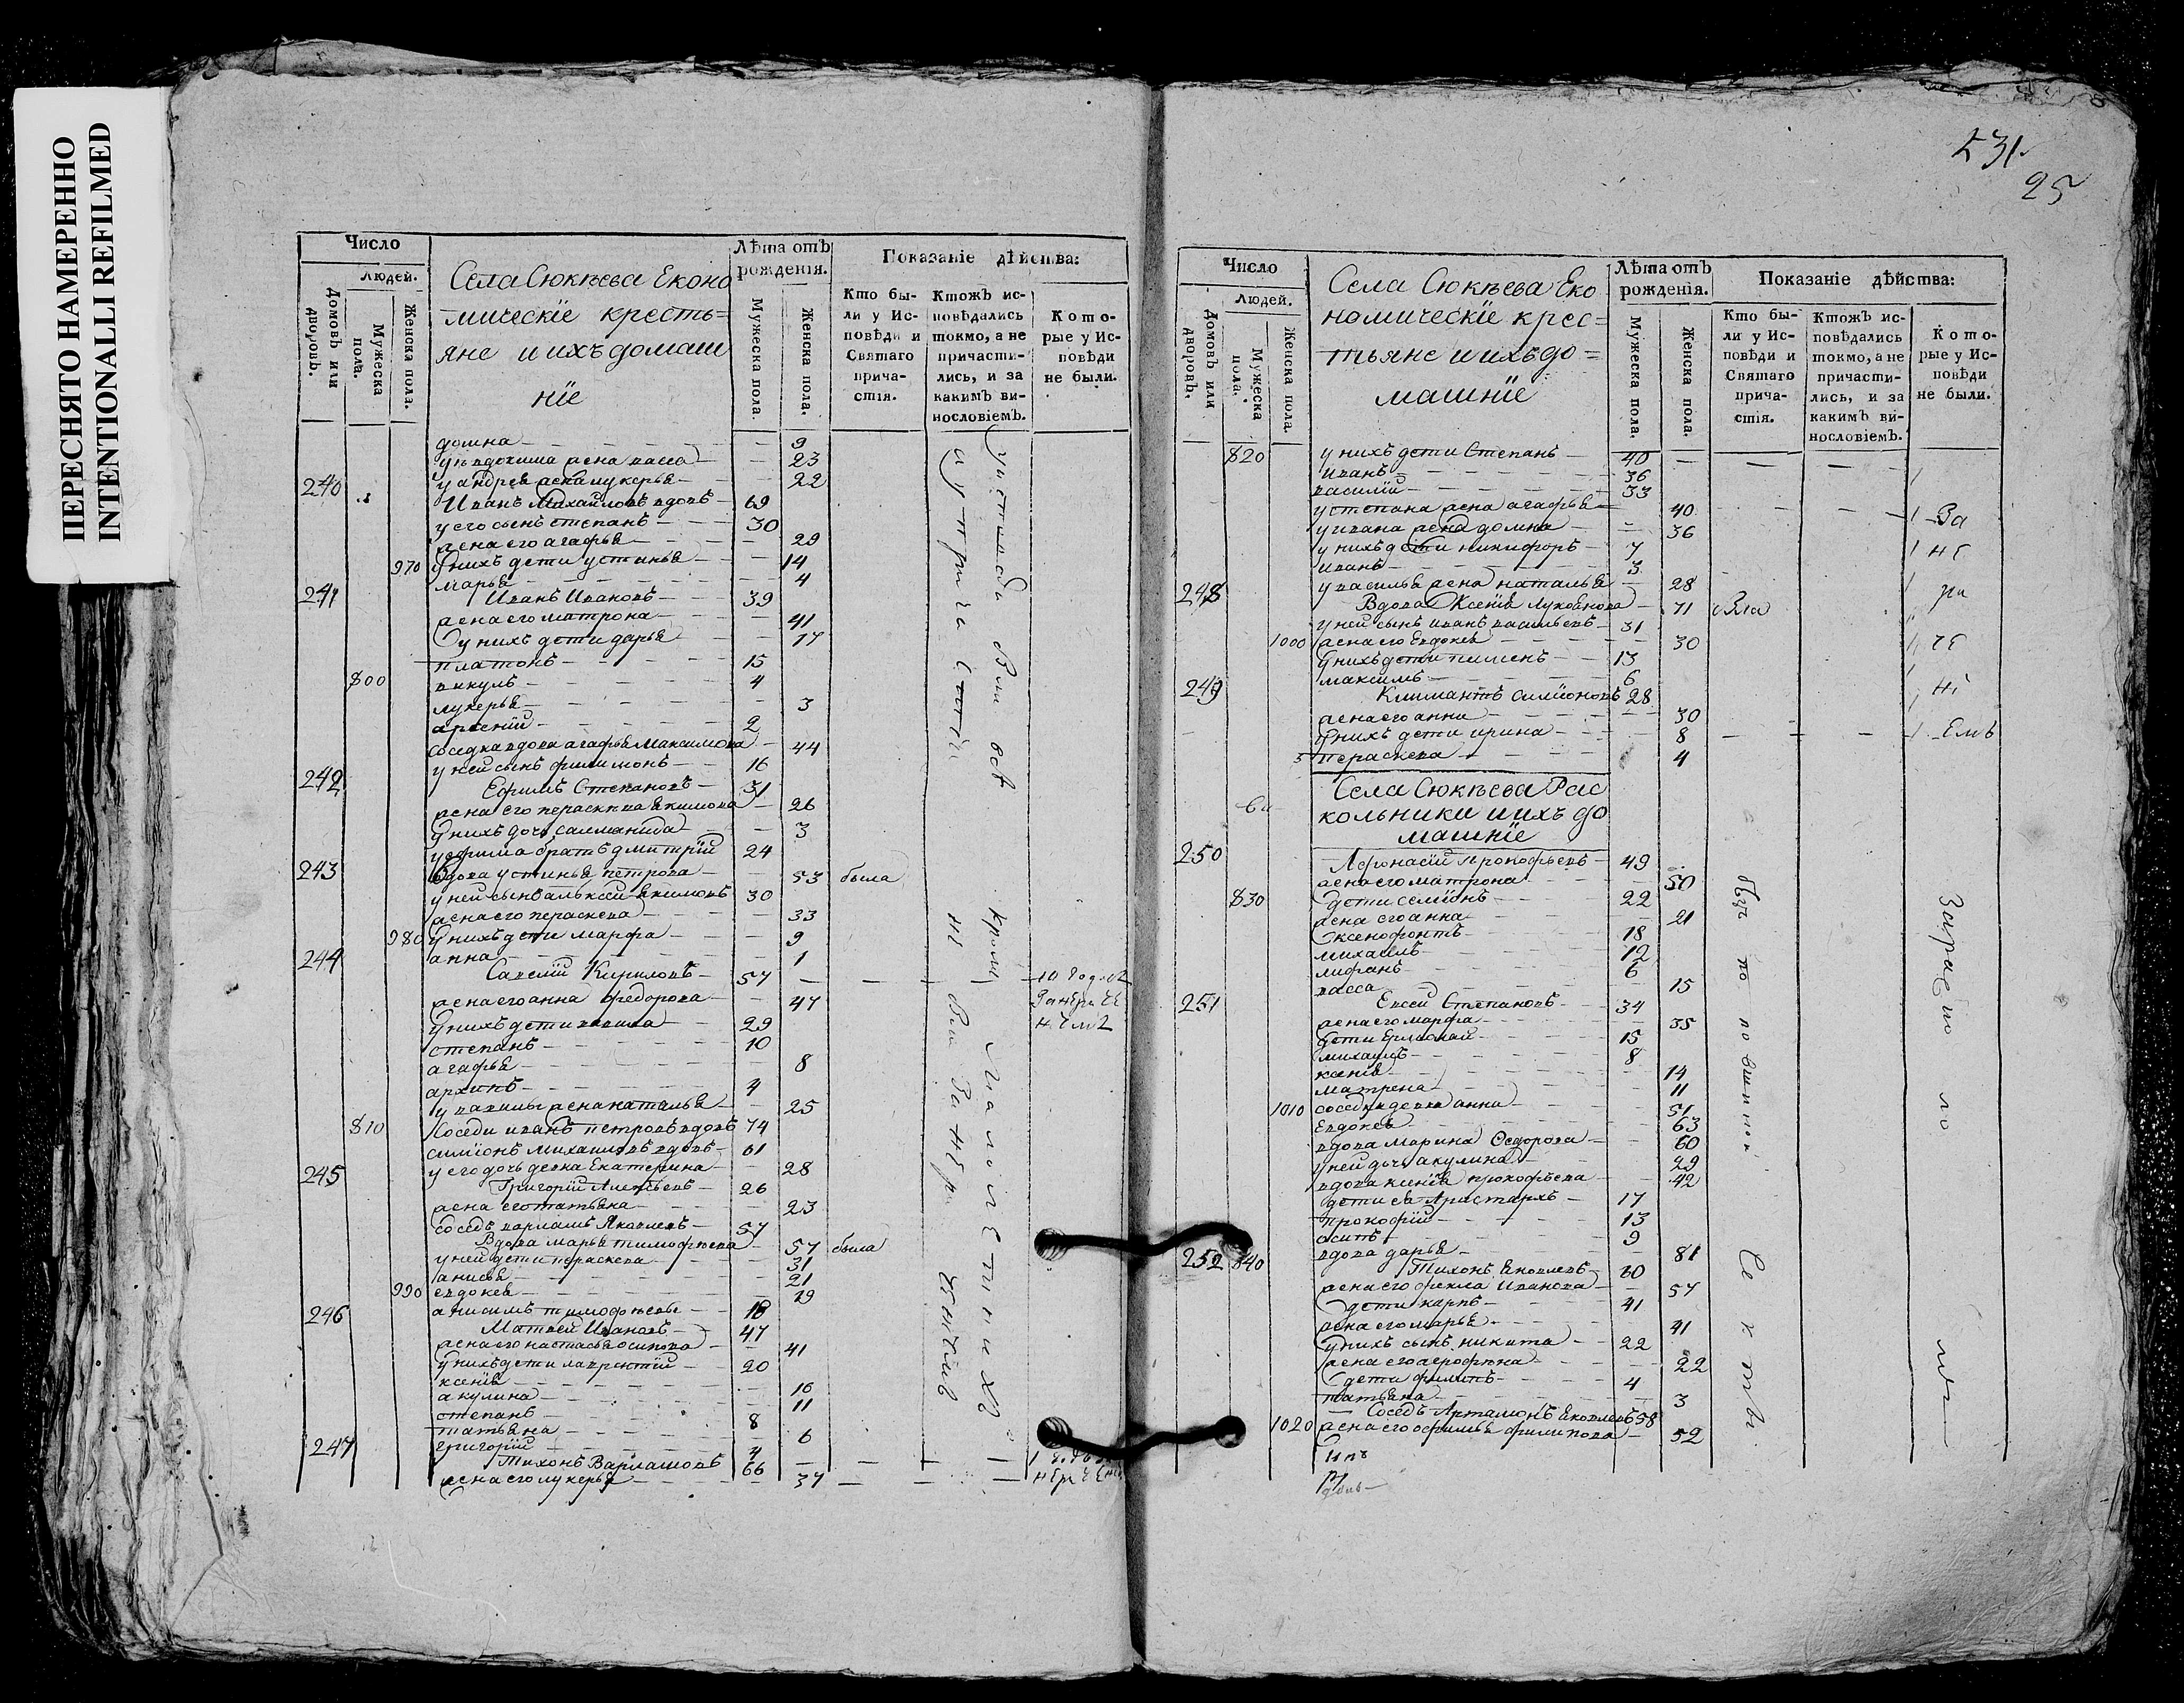 ПЕРЕСНЯТО НАМЕРЕННО
INTENTIONALLI REFILMED
Число
Людей.
Домовъ или дворовъ.
Мужеска пола.
Женска пола.
Села Сюкѣева Еконо
мическiе кресть=
яне и ихъ домаш
нiе
Лѣта отъ рожденiя.
Мужеска пола.
Женска пола.
Показанiе дѣйства:
Кто бы-
ли у Ис-
повѣди и
Святаго
прича-
стiя.
Ктожъ ис-
повѣдались
токмо, а не
причасти-
лись, и за
какимъ ви-
нословiемъ.
Кото-
рые у Ис-
повѣди
не были.
домна 9
жена васса 23
у андрея жена лукерья 22
240 Иванъ Михайловъ вдовъ 69
у его сынъ степанъ 30
жена его агафья 29
970 у нихъ дети устинья 14
марья 4
241 Иванъ Ивановъ 39
жена его матрона 41
у нихъ дети дарья 17
платонъ 15
800 викулъ 4
лукерья 3
арсенiй 2
соседка вдова агафья Максимова 44
у ней сынъ филимонъ 16
242 Ефимъ Степановъ 31
жена его Екимова 26
у нихъ дочь саламанида 3
у ефима братъ дмитрiй 24
243 Вдова устинья петрова 53 была
у ней сынъ алексей Екимовъ 30
жена его параскева 33
980 у нихъ дети марфа 9
анна 1
244 Савелiй Кириловъ 57
жена его анна федорова 47
у нихъ дети вавила 29
степанъ 10
агафья 8
архипъ 4
у вавилы жена наталья 25
810 Соседи иванъ петровъ вдовъ 74
симiонъ михаиловъ вдовъ 61
у его дочь девка Екатерина 28
245 Григорiй 26
жена его татьяна 23
соседъ варламъ Яковлевъ 57
Вдова марья тимофѣева 57 была
у ней дети параскева 31
анисья 21
990 евдокея 19
анисимъ тимофѣевъ 18
246 Матвей Ивановъ 47
жена его настасья осипова 41
у нихъ дети лаврентiй 20
ксенiя 16
акулина 11
степанъ 8
татьяна 6
григорiй 4
247 Тихонъ Варламовъ 66
жена его лукерья 37
кроме малолетнихъ
531
25
Число
Людей.
Домовъ или дворовъ.
Мужеска пола.
Женска пола.
Села Сюкѣева Еко
номическiе крес=
тьяне и ихъ до=
машнiе
Лѣта отъ рожденiя.
Мужеска пола.
Женска пола.
Показанiе дѣйства:
Кто бы-
ли у Ис-
повѣди и
Святаго
прича-
стiя.
Ктожъ ис-
повѣдались
токмо, а не
причасти-
лись, и за
какимъ ви-
нословiемъ.
Кото-
рые у Ис-
повѣди
не были.
820 у нихъ дети Степанъ 40
иванъ 36
василiй 33
у степана жена агафья 40
у ивана жена домна 36
у нихъ дети никифоръ 7
иванъ 3
у василья жена наталья 28
248 Вдова Ксенiя 71 была
у ней сынъ иванъ васильевъ 31
1000 жена его Евдокея 30
у нихъ дети пимонъ 13
максимъ 6
249 Климантъ симiоновъ 28
жена его анна 30
у нихъ дети ирина 8
параскева 4
За не ра че нi емъ
Села Сюкѣева Рас
кольники и ихъ до
машнiе
250 Афонасiй прокофьевъ 49
жена его матрона 50
830 дети семiонъ 22
жена его анна 21
ксенофонтъ 18
михаилъ 12
лифанъ 6
васса 15
251 Евсей Степановъ 34
жена его марфа 35
дети Ермолай 15
михаилъ 8
ксенiя 14
матрена 11
1010 соседка девка анна 51
Евдокея 63
вдова Марина Федорова 60
у ней дочь акулина 29
вдова ксенiя прокофьева 42
дети ея Аристархъ 17
прокофiй 13
осипъ 9
вдова дарья 81
252 840 Тихонъ Яковлевъ 60
жена его фекла Иванова 57
дети карпъ 41
жена его марья 41
у нихъ сынъ никита 22
жена его 22
дети филипъ 4
татьяна 3
Соседъ Артамонъ Яковлевъ 58
1020 жена его офимья филипова 52